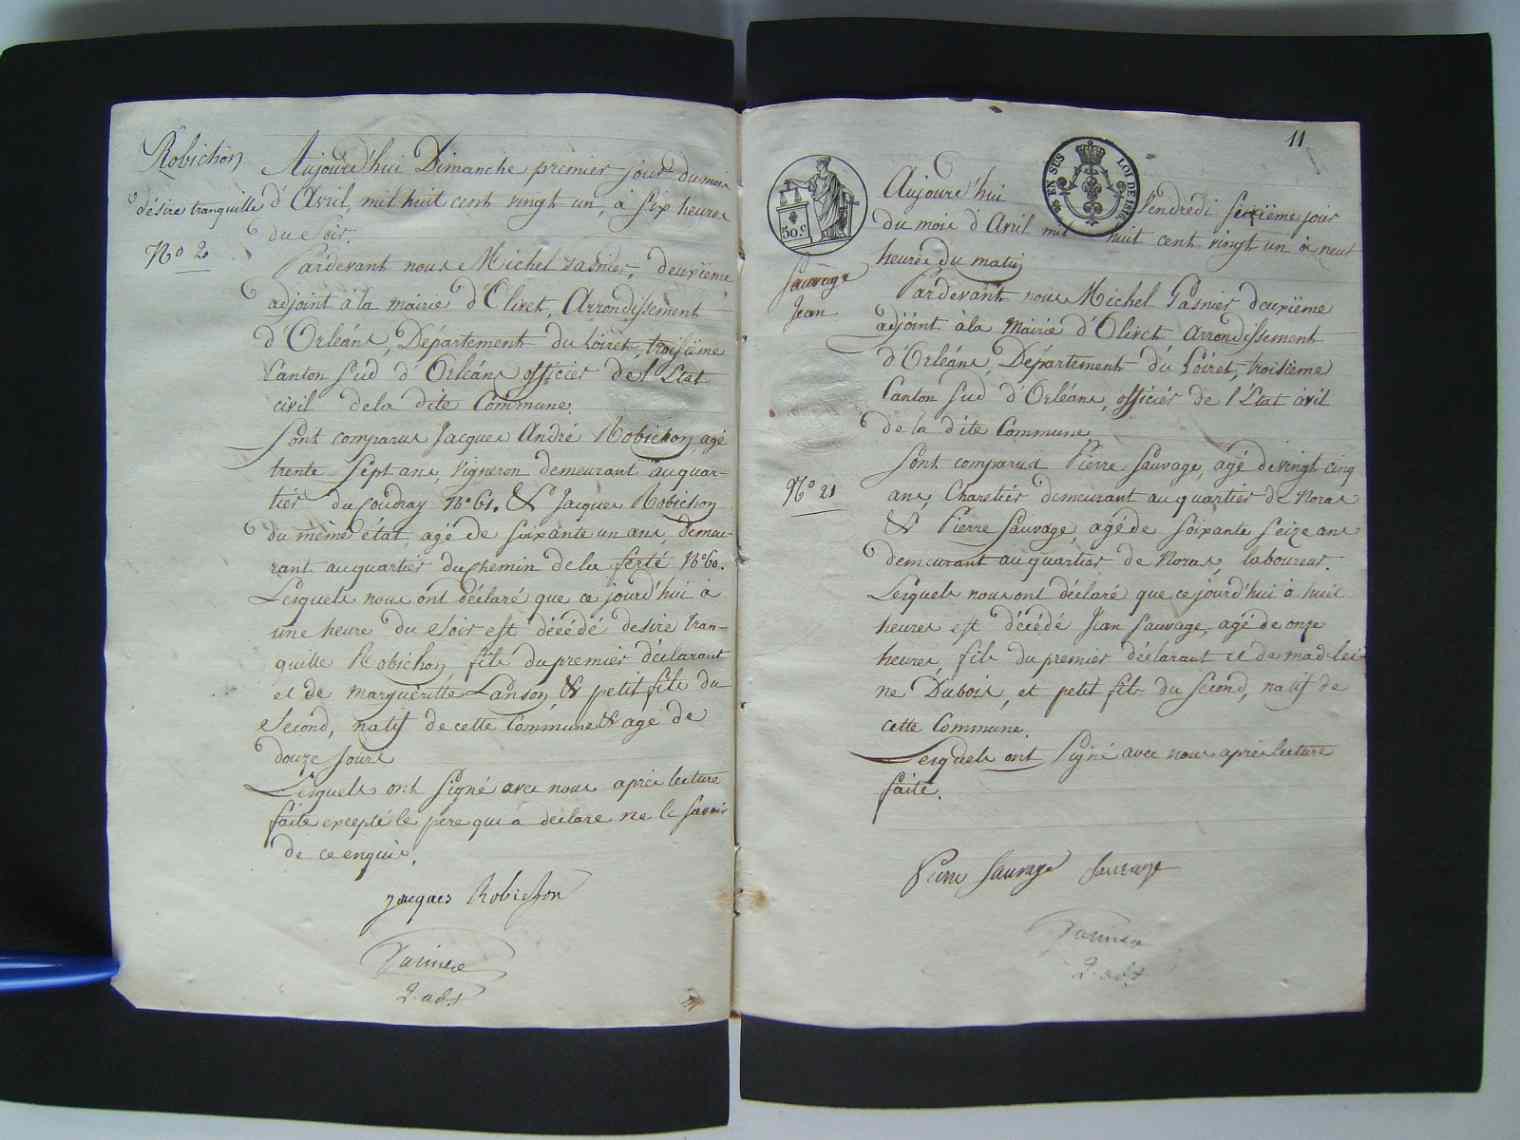 Robichon
désiré tranquille
No 2
Aujourd'hui Dimanche premier jour du mois
d'Avril, mil huit cent vingt un, à six heures
du soir.
Pardevant nous Michel Pasnier, deuxième
adjoint à la mairie d'Olivet, Arrondissement
d'Orléans, Département du Loiret, troisième
Canton Sud d'Orléans officier de l'Etat
civil dela dite Commune,
Sont comparus Jacques André Robichon, agé
trente-sept ans, vigneron demeurant au quar-
tier du Coudray No 61. & Jacques Robichon
du même état, agé de soixante un ans, demeu-
rant au quartier du chemin dela ferté No 60.
Lesquels nous ont déclaré que ce jourd'hui à
une heure du soir est décédé desiré tran-
quille Robichon fils du premier déclarant
et de marguéritte Lanson & petit fils du
second, natif de cette Commune & agé de
douze jours
Lesquels ont signé avec nous après lecture
faite excepté le père qui a déclaré ne le savoir
de ce enquis.
jacques Robichon
2. adj
11
50 c
EN SUS
LOI DE 1816
Sauvage
Jean
No 21
Aujourd'hui Vendredi sixième jour
du mois d'Avril mil huit cent vingt un à neuf
heures du matin
Pardevant nous Michel Pasnier deuxième
adjoint à la Mairie d'Olivet Arrondissement
d'Orléans, Département du Loiret, troisième
Canton Sud d'Orléans, officier de l'Etat civil
de la dite Commune
Sont comparus Pierre Sauvage, agé de vingt cinq
ans, Charetier demeurant au quartier de Noras
& Pierre Sauvage, agé de soixante seize ans
demeurant au quartier de Noras, laboureur.
Lesquels nous ont déclaré que ce jourd'hui à huit
heures est décédé Jean Sauvage, agé de onze
heures, fils du premier déclarant et de madelei-
ne Dubois, et petit fils du second, natif de
cette Commune.
Lesquels ont signé avec nous après lecture
faite.
Pierre Sauvage Sauvage
2. adj